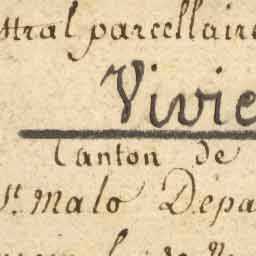 stral parcellaire
Vivie
Canton de
St. Malo Dépa